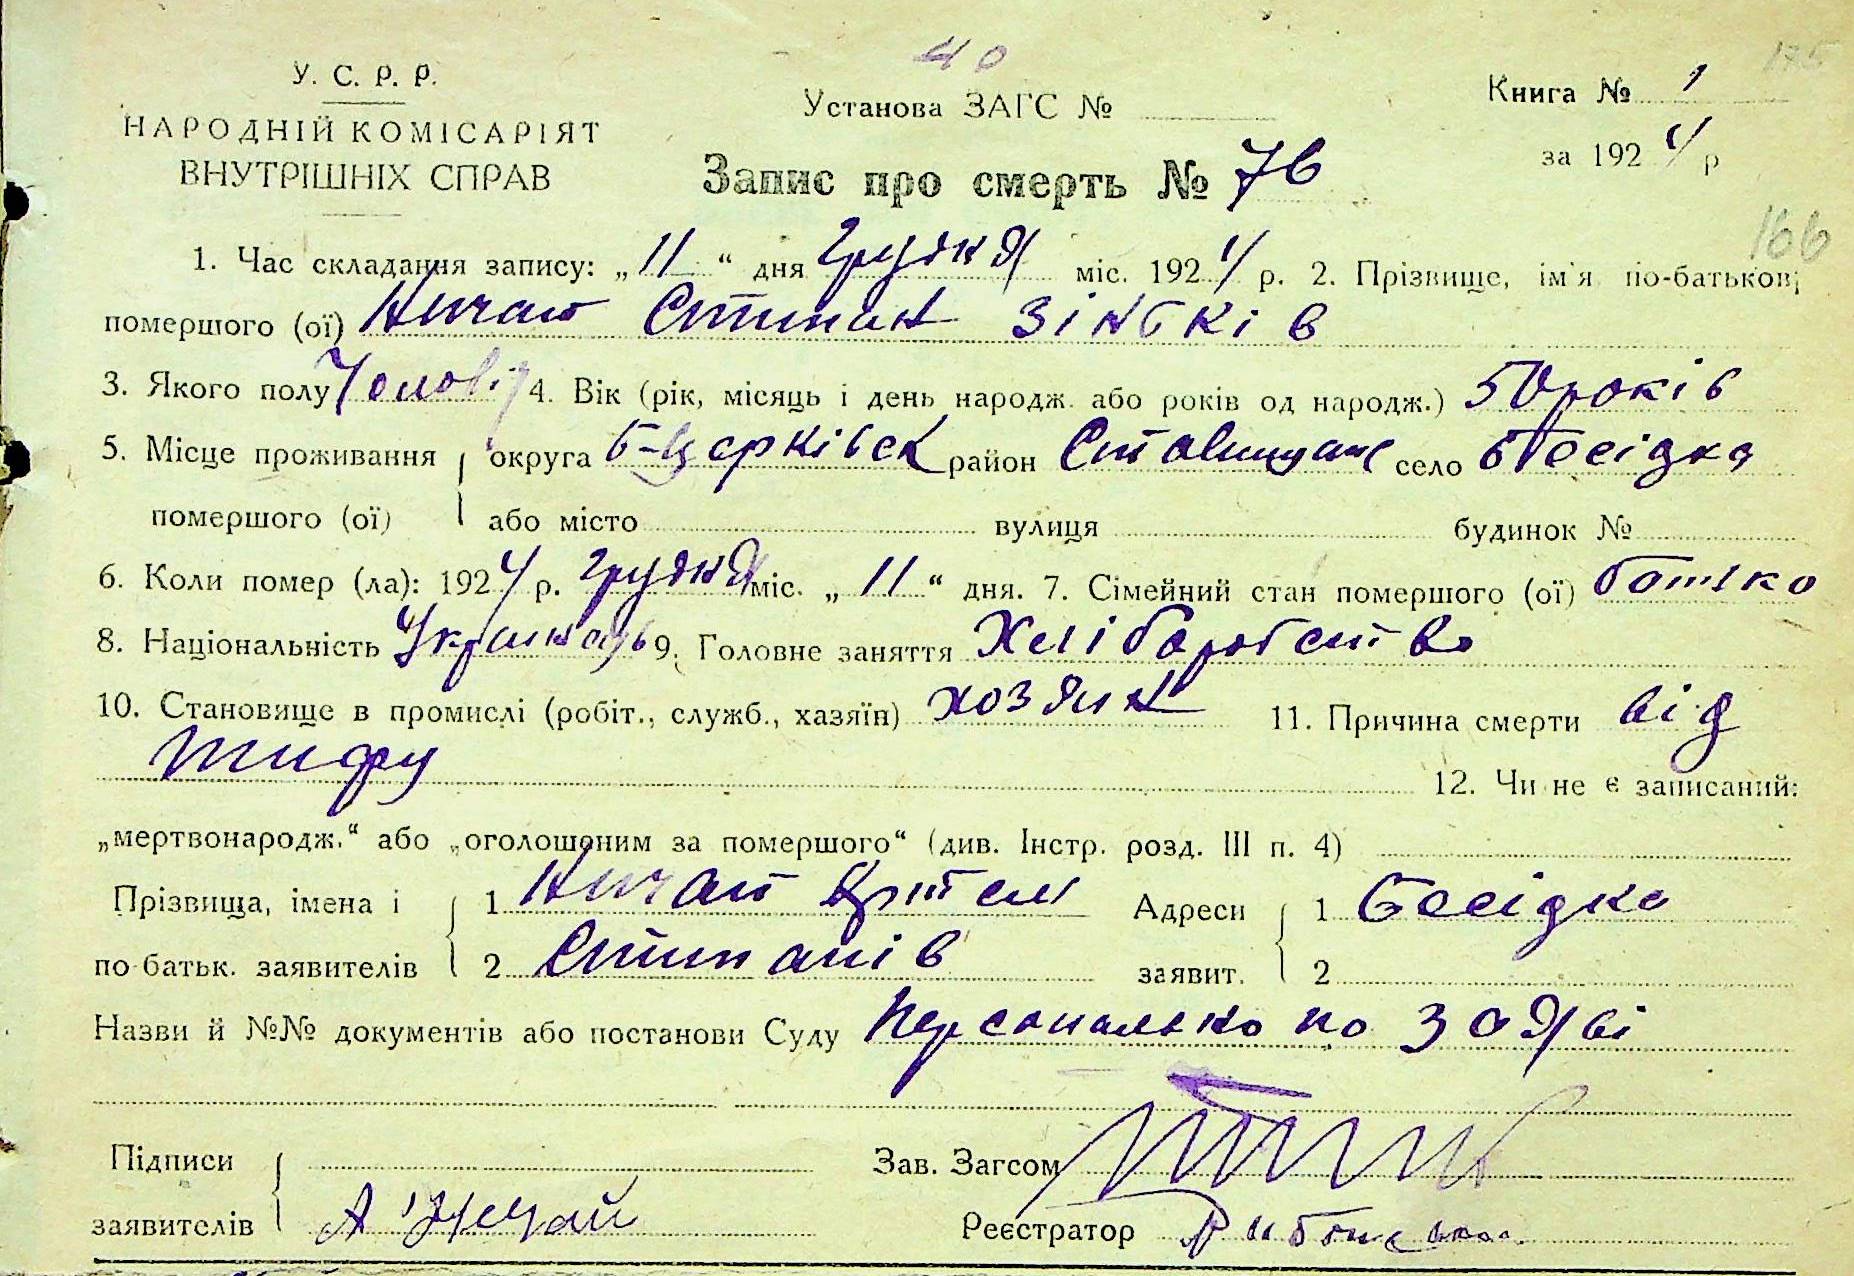 40
У. С. Р. Р.
НАРОДНІЙ КОМІСАРІЯТ
ВНУТРІШНІХ СПРАВ
Установа ЗАГС №
Запис про смерть № 76
Книга № 1
за 1924 р
166
1. Час складання запису: „11“ дня Грудня міс. 1924 р. 2. Прізвище, ім'я по-батькові
помершого (ої) Ничай Стипан Зіньків
3. Якого полу Чолові 4. Вік (рік, місяць і день народж. або років од народж.) 50 років
5. Місце проживання округа Б-Церківск район Ставищанс село Бесідка
помершого (ої) або місто вулиця будинок №
6. Коли помер (ла): 1924 р. Грудня міс. „11“ дня. 7. Сімейний стан помершого (ої) батько
8. Національність Українець 9. Головне заняття Хліборобство
10. Становище в промислі (робіт., служб., хазяїн) хозяин 11. Причина смерти від
тифу
12. Чи не є записаний:
„мертвонародж.“ або „оголошеним за помершого“ (див. Інстр. розд. III п. 4)
Прізвища, імена і 1 Ничай Артем Адреси 1 Бесідка
по батьк. заявителів 2 Стипанів заявит. 2
Назви й №№ документів або постанови Суду Персонально по заяві
Підписи Зав. Загсом
заявителів А Нечай Реєстратор